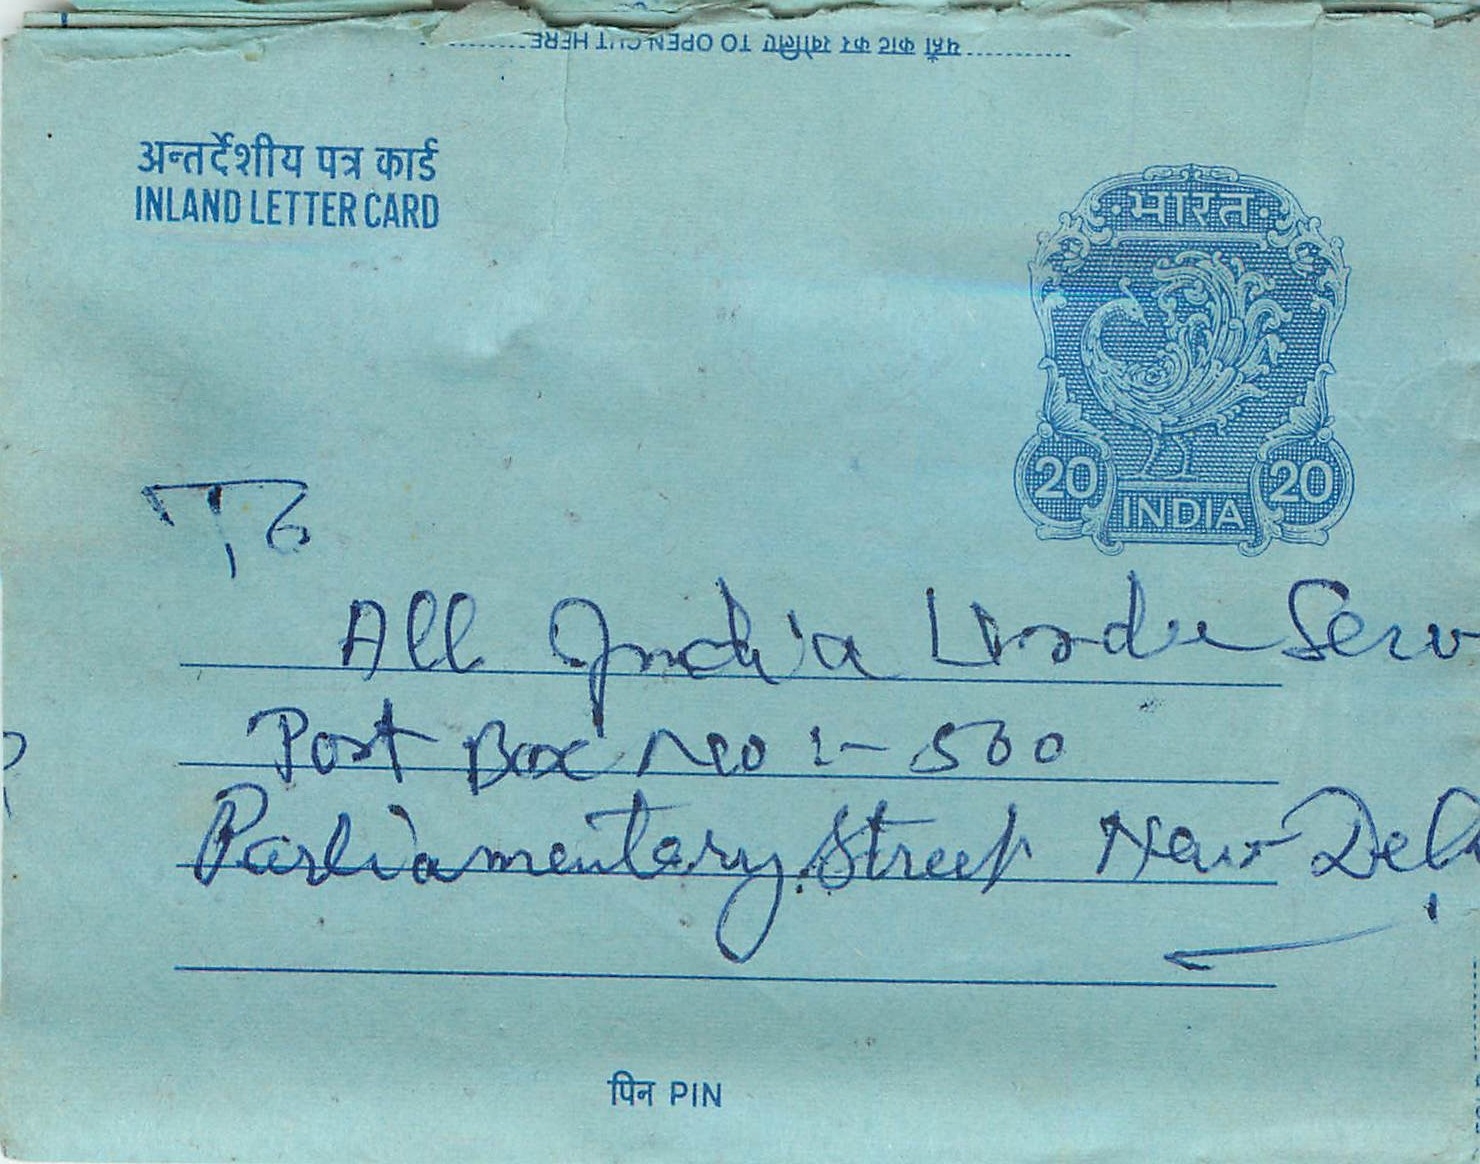 यहाँ काट कर खोलिए TO OPEN CUT HERE
अन्तर्देशीय पत्र कार्ड
INLAND LETTER CARD
भारत
20 20
INDIA
To
All India Urdu Serv
Post Box No :- 500
Parliamentary Street New Delh
पिन PIN